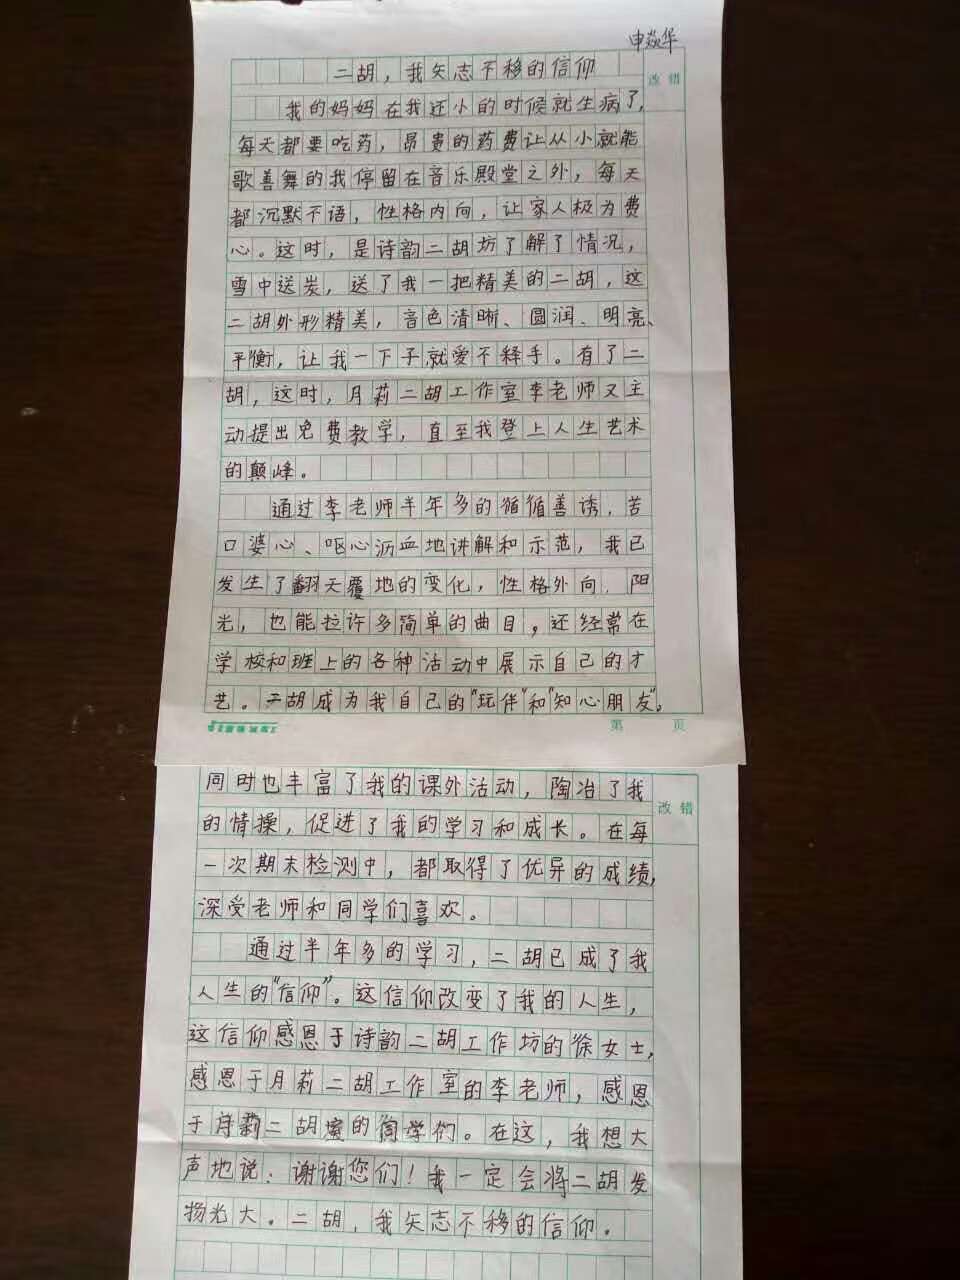 申焱华
二胡，我矢志不移的信仰
改 错
我的妈妈在我还小的时候就生病了，
每天都要吃药，昂贵的药费让从小就能
歌善舞的我停留在音乐殿堂之外，每天
都沉默不语，性格内向，让家人极为费
心。这时，是诗韵二胡坊了解了情况，
雪中送炭，送了我一把精美的二胡，这
二胡外形精美，音色清晰、圆润、明亮、
平衡，让我一下子就爱不释手。有了二
胡，这时，月莉二胡工作室李老师又主
动提出免费教学，直至我登上人生艺术
的颠峰。
通过李老师半年多的循循善诱，苦
口婆心、呕心沥血地讲解和示范，我已
发生了翻天覆地的变化，性格外向，阳
光，也能拉许多简单的曲目，还经常在
学校和班上的各种活动中展示自己的才
艺。二胡成为我自己的"玩伴"和"知心朋友"。
第 页
同时也丰富了我的课外活动，陶冶了我
改 错
的情操，促进了我的学习和成长。在每
一次期末检测中，都取得了优异的成绩，
深受老师和同学们喜欢。
通过半年多的学习，二胡已成了我
人生的"信仰"。这信仰改变了我的人生，
这信仰感恩于诗韵二胡工作坊的徐女士，
感恩于月莉二胡工作室的李老师，感恩
于月莉二胡室的同学们。在这，我想大
声地说：谢谢您们！我一定会将二胡发
扬光大。二胡，我矢志不移的信仰。